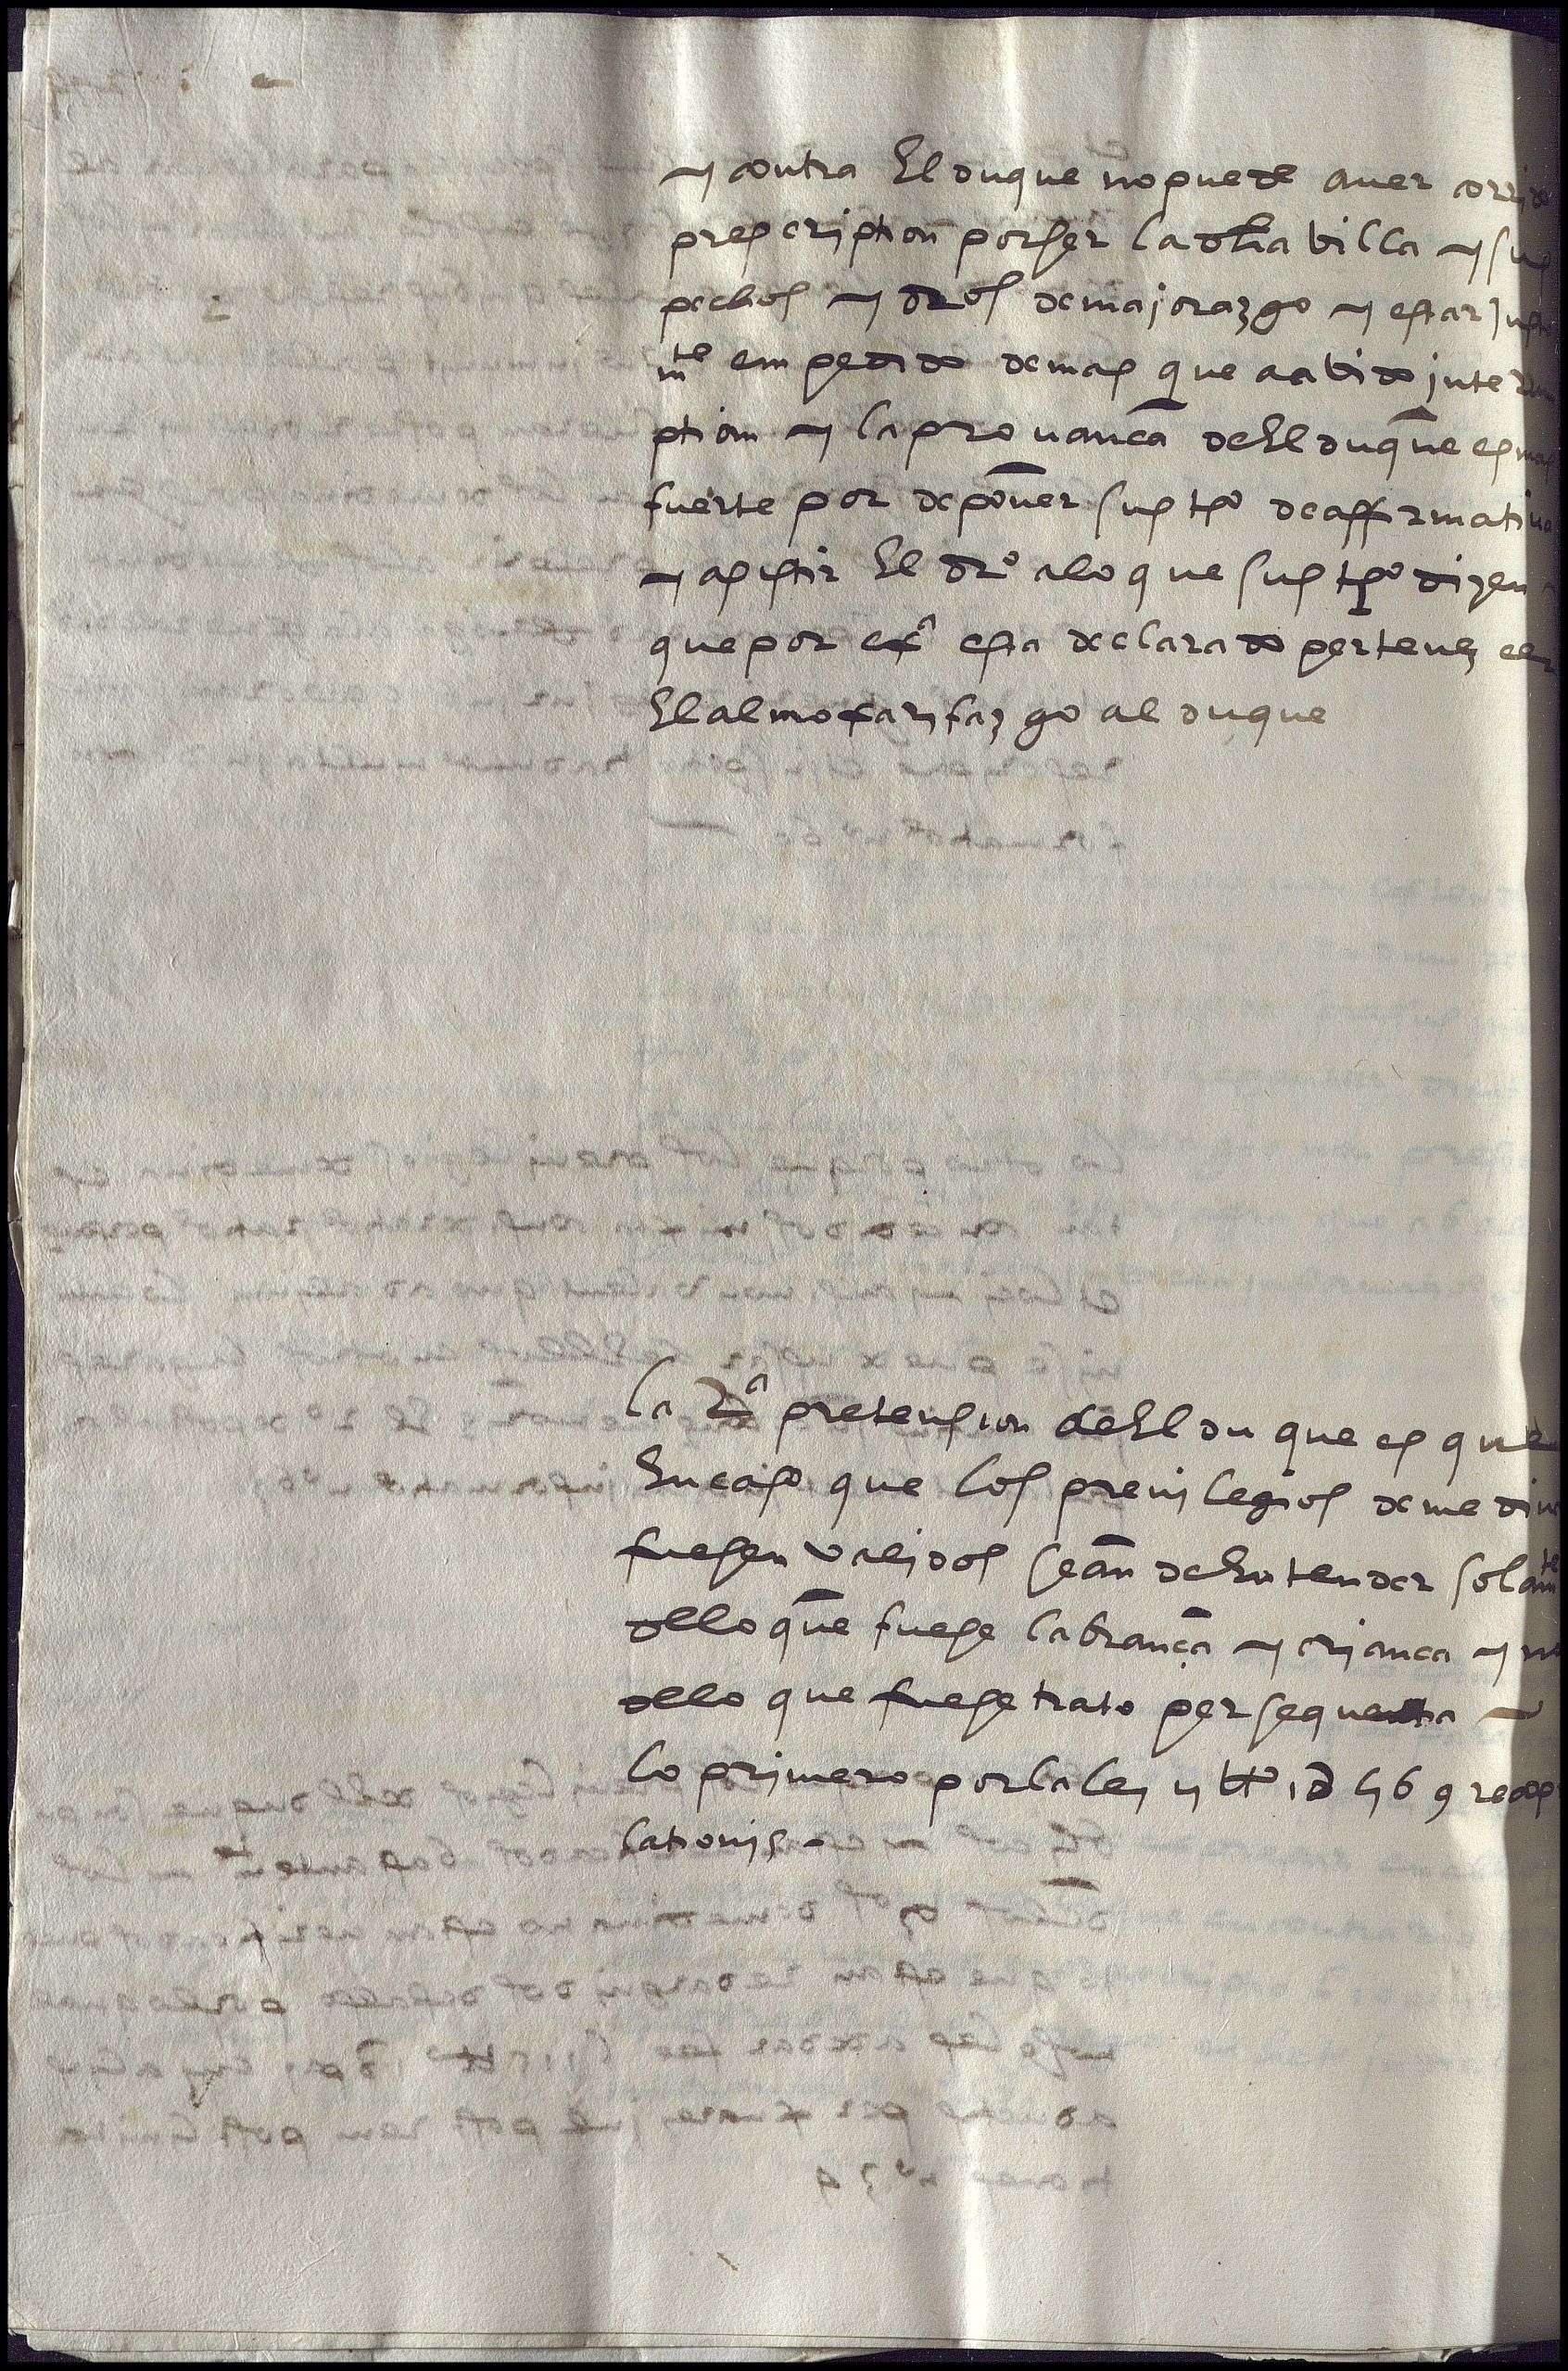 y contra El duque no puede auer
prescription por ser la dha billa y sus
pechos y dros de majorazgo y estar
mte empedido demas que a abido
ption y la prouança de El duque es mas
fuerte por deponer sus tos de affirmatiua
y asistir El dro a lo que sus tos dizen
que por exa esta declarado pertenezcer
El almoxarifazgo al duque
la 2a pretension de El duque es que
En caso que los preuilegios de medina
fuesen validos sean de Entender solamte
dello que fuese labrança y criança y no
dello que fuese trato per sequentia
lo primero por la ley
lationis